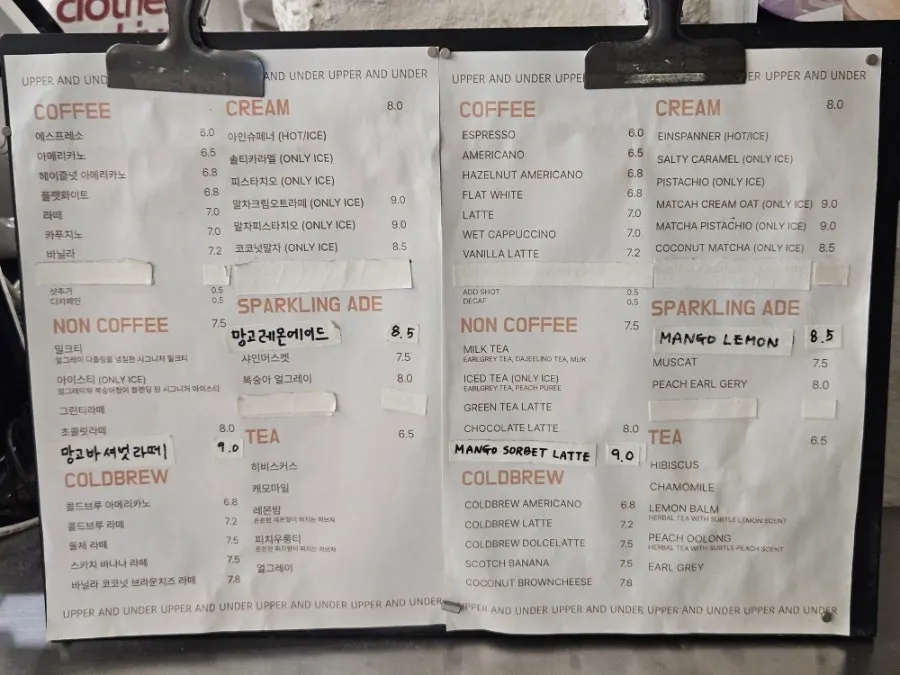 clothe
UPPER AND UND
AND UNDER UPPER AND UNDER
COFFEE
에스프레소 6.0
아메리카노 6.5
헤이즐넛 아메리카노 6.8
플랫화이트 6.8
라떼 7.0
카푸치노 7.0
바닐라 7.2
샷추가 0.5
디카페인 0.5
NON COFFEE 7.5
밀크티
얼그레이 다즐링을 냉침한 시그니처 밀크티
아이스티 (ONLY ICE)
얼그레이와 복숭아청이 블렌딩 된 시그니처 아이스티
그린티라떼
초콜릿라떼 8.0
망고바 셔벗 라떼 9.0
COLDBREW
콜드브루 아메리카노 6.8
콜드브루 라떼 7.2
돌체 라떼 7.5
스카치 바나나 라떼 7.5
바닐라 코코넛 브라운치즈 라떼 7.8
CREAM 8.0
아인슈페너 (HOT/ICE)
솔티카라멜 (ONLY ICE)
피스타치오 (ONLY ICE)
말차크림오트라떼 (ONLY ICE) 9.0
말차피스타치오 (ONLY ICE) 9.0
코코넛말차 (ONLY ICE) 8.5
SPARKLING ADE
망고레몬에이드 8.5
샤인머스켓 7.5
복숭아 얼그레이 8.0
TEA 6.5
히비스커스
캐모마일
레몬밤
은은한 레몬향이 퍼지는 허브차
피치우롱티
은은한 피치향이 퍼지는 허브차
얼그레이
UPPER AND UNDER UPPER AND UNDER UPPER AND UNDER UPPER AND UNDER
UPPER AND UNDER UPPE
AND UNDER UPPER AND UNDER
COFFEE
ESPRESSO 6.0
AMERICANO 6.5
HAZELNUT AMERICANO 6.8
FLAT WHITE 6.8
LATTE 7.0
WET CAPPUCCINO 7.0
VANILLA LATTE 7.2
ADD SHOT 0.5
DECAF 0.5
NON COFFEE 7.5
MILK TEA
EARLGREY TEA, DAJEELING TEA, MILK
ICED TEA (ONLY ICE)
EARLGREY TEA, PEACH PUREE
GREEN TEA LATTE
CHOCOLATE LATTE 8.0
MANGO SORBET LATTE 9.0
COLDBREW
COLDBREW AMERICANO 6.8
COLDBREW LATTE 7.2
COLDBREW DOLCELATTE 7.5
SCOTCH BANANA 7.5
COCONUT BROWNCHEESE 7.8
CREAM 8.0
EINSPANNER (HOT/ICE)
SALTY CARAMEL (ONLY ICE)
PISTACHIO (ONLY ICE)
MATCAH CREAM OAT (ONLY ICE) 9.0
MATCHA PISTACHIO (ONLY ICE) 9.0
COCONUT MATCHA (ONLY ICE) 8.5
SPARKLING ADE
MANGO LEMON 8.5
MUSCAT 7.5
PEACH EARL GERY 8.0
TEA 6.5
HIBISCUS
CHAMOMILE
LEMON BALM
HERBAL TEA WITH SUBTLE LEMON SCENT
PEACH OOLONG
HERBAL TEA WITH SUBTLE PEACH SCENT
EARL GREY
UPPER AND UNDER UPPER AND UNDER UPPER AND UNDER UPPER AND UNDER